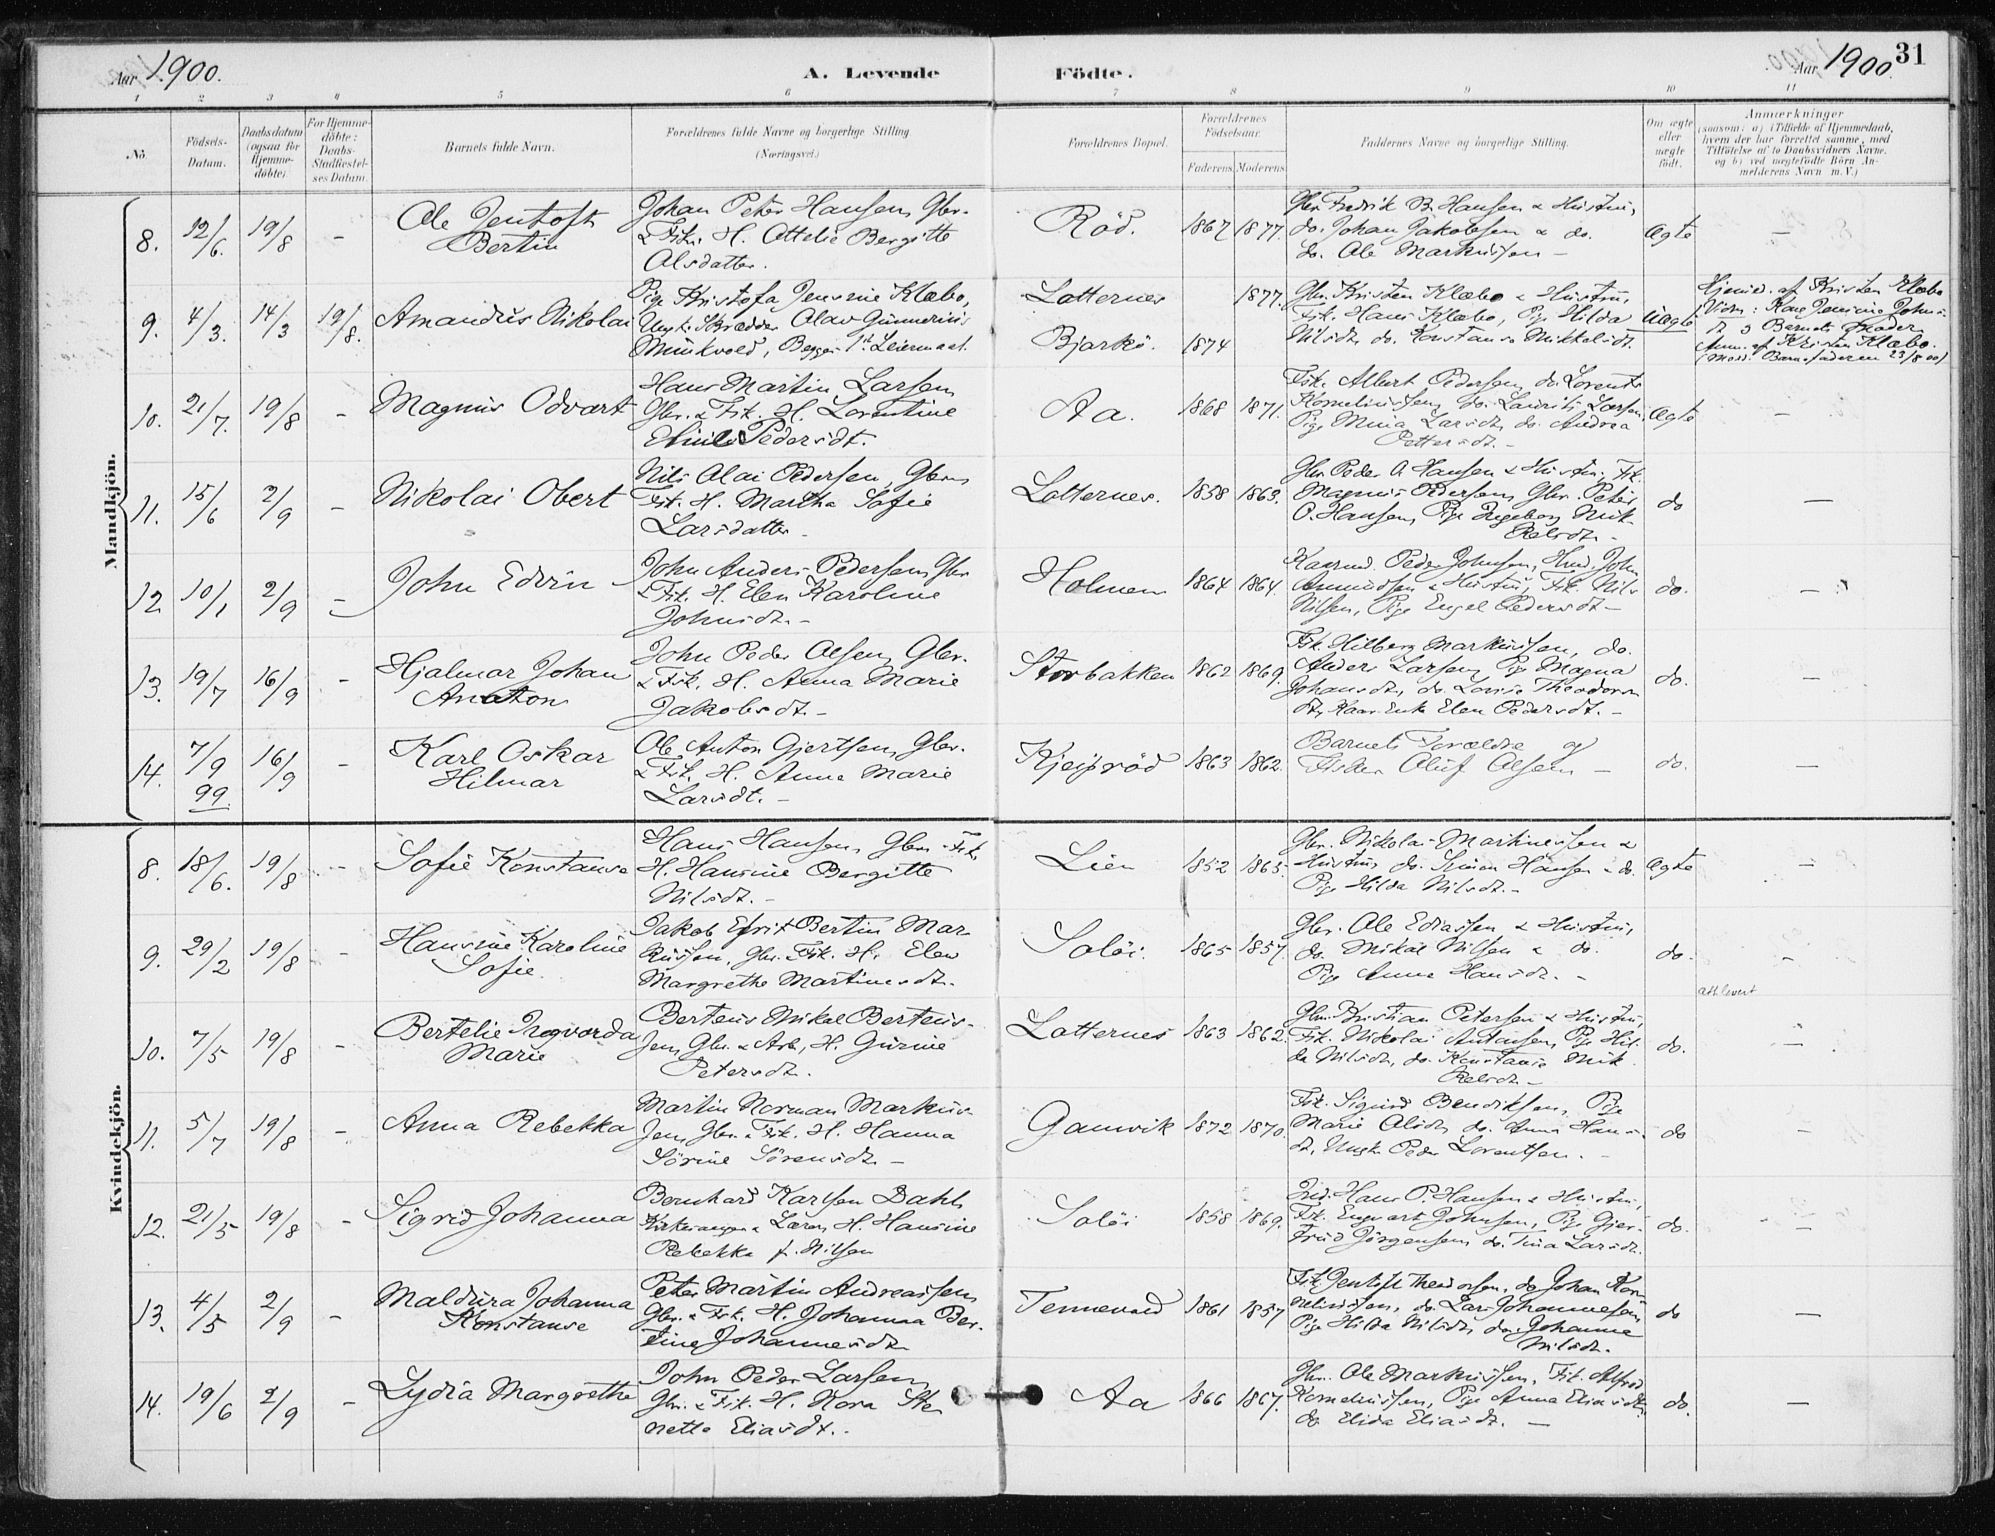 Aar 1900. A. Levende Födte. Aar 1900. 31
1 2 3 4 5 6 7 8 9 10 11
No Födsels-Datum. Daabsdatum (ogsaa for Hjemme-döbte) For Hjemme-döbte: Daabs-Stadfæstel-ses Datum. Barnets fulde Navn. Forældrenes fulde Navne og borgerlige Stilling. (Næringsvei.) Forældrenes Bopæl. Forældrenes Födselsaar. Faderens Moderens Faddernes Navne og borgerlige Stilling. Om ægte eller uægte födt. Anmærkninger (saasom: a) i Tilfælde af Hjemmedaab, hvem der har forrettet samme, med Tilföielse af to Daabsvidners Navne, og b) ved uægtefödte Börn An-melderens Navn m. V.)
Mandkjön.
8. 12/6. 19/8 - Ole Jentoft Bertin
Johan Peter Hansen, Gbr.
& Fisk. H. Attelie Bergitte
Olsdatter.
Röd. 1867 1877.
Gbr. Fredrik B. Hansen & Hustru,
do. Johan Jakobsen & do.
do. Ole Markussen -
Ægte -
9. 4/3. 14/3 19/8. Amandus Nikolai
Pige Kristofa Jensine Klæbo,
Ungk. Skrædder Olav Gunnerius
Munkvold, Begges 1st Leiermaal.
Lotternes Bjarkö. 1874 1877.
Gbr. Kristen Klæbo & Hustru,
Fisk. Hans Klæbo, Pige Hilda
Nilsdt, do. Konstanse Mikkelsdt.
Uægte
Hjemd. af Kristen Klæbo
Anm. af Kristen Klæbo.
10. 21/7. 19/8 - Magnus Odvart
Hans Martin Larsen,
Gbr. & Fisk. H. Lorentine
Pedersdt.
Aa. 1868 1871.
Fisk. Albert Pedersen, do. Lorents
Korneliussen, do. Laurits Larsen,
Pige Mina Larsdt, do. Andrea
Pettersdt. -
Ægte -
11. 15/6 2/9 - Nikolai Obert
Nils Olai Pedersen, Gbr.
Fisk. H. Martha Sofie
Larsdatter -
Lotternes. 1858 1863.
Gbr. Peder A Hansen & Hustru, Fisk.
Magnus Pedersen, Gbr. Peter
O. Hansen, Pige Ingeborg Mik-
kelsdt. -
do -
12. 10/1 2/9 - John Edvin
John Anders Pedersen, Gbr.
& Fisk. H. Elen Karoline
Johnsdt. -
Holmen 1864 1864.
Kaarmd. Peder Johnsen, Husmd. John
Amundsen & Hustru, Fisk. Nils
Nilsen, Pige Engel Pedersdt -
do. -
13. 19/7 16/9 - Hjalmar Johan
Anaton
John Peder Olsen, Gbr.
& Fisk. H. Anna Marie
Jakobsdt. -
Storbakken 1862 1869.
Fisk. Hilberg Markussen, do.
Anders Larsen, Pige Magna
Johansdt, do. Lovise Theodors-
dt, Kaar-Enke Elen Pedersdt. -
do. -
14. 7/9 99. 16/9 - Karl Oskar
Hilmar
Ole Anton Gjertsen, Gbr.
& Fisk. H. Anna Marie
Larsdt. -
Kjeiprød 1863 1862.
Barnets Forældre og
Fisker Oluf Olsen -
do. -
Kvindekjön.
8. 18/6. 19/8 - Sofie Konstanse
Hans Hansen, Gbr. & Fisk.
H. Hansine Bergitte
Nilsdt. -
Lien 1852 1865.
Gbr. Nikolai Martinussen &
Hustru, do. Simon Hansen & do.
Pige Hilda Nilsdt. -
Ægte -
9. 29/2 19/8 - Hansine Karoline
Sofie.
Jakob Bertin Mar-
kussen, Gbr. Fisk. H. Elen
Margrethe Martinusdt.
Soløi. 1865 1857.
Gbr. Ole Eliassen & Hustru,
do. Mikal Nilsen & do.
Pige Anna Hansdt. -
do. -
10. 7/5 19/8 - Bertelie Ingvorda
Marie
Berteus Mikal Berteus-
sen, Gbr. & Arb., H. Gurine
Petersdt.
Lotternes 1863 1862.
Gbr. Kristian Petersen & Hustru,
Fisk. Nikolai Antonsen, Pige Hil-
da Nilsdt, do. Konstanse Mik-
kelsdt. -
do. -
11. 5/7 19/8 - Anna Rebekka
Martin Norman Markus-
sen, Gbr. & Fisk. H. Hanna
Sörine Sörensdt. -
Gamvik 1872 1870.
Fisk. Sigurd Bendiksen, Pige
Marie Olsdt, do. Anna Hans-
dt, Ungk. Peder Lorentsen. -
do -
12. 21/5 19/8 - Sigrid Johanna
Bernhard Karlsen Dahl,
Kirkesanger & Lærer, H. Hansine
Rebekka f. Nilsen
Soløi 1858 1869.
Hans P. Hansen & Hustru,
Fisk. Engvart Johnsen, Pige Gjer-
trud Jörgensen, do. Tina Larsdt.
do. -
13. 4/5 2/9 - Maldura Johanna
Konstanse
Peter Martin Andreassen,
Gbr. & Fisk. H. Johanna Ber-
tine Johannesdt.
Tennevold 1861 1857
Fisk. Jentoft Theodorsen, do. Johan Kor-
neliussen, do. Lars Johannesen,
Pige Hilda Nilsdt, do. Johanna
Nilsdt.
do -
14. 19/6 2/9 - Lydia Margrethe
John Peder Larsen,
Gbr. & Fisk. H. Nora Ste-
nette Eliasdt. -
Aa 1866 1867.
Gbr. Ole Markussen, Fisk. Alfred
Korneliussen, Pige Anna Eliasdt,
do. Elida Eliasdt. -
do. -